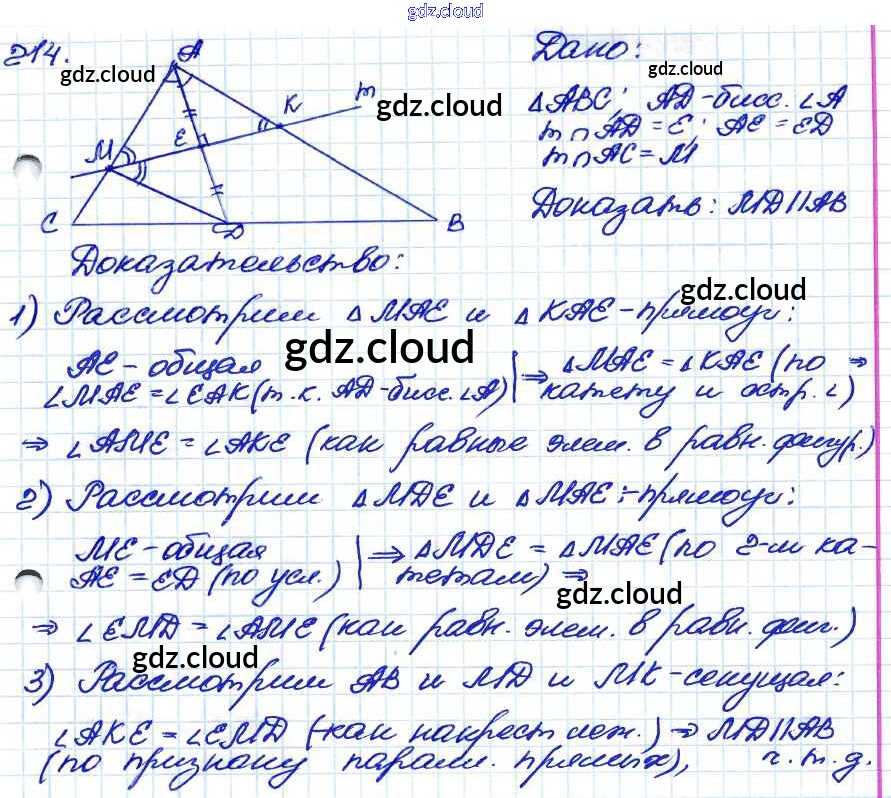 gdz.cloud
214.
A
gdz.cloud
K
m
gdz.cloud
M
E
C
D
B
Дано:
gdz.cloud
△ABC; AD-бисс. ∠A
m∩AD=E; AE=ED
m∩AC=M
Доказать: MD||AB
Доказательство:
1) Рассмотрим △MAE и △KAE-прямоуг:
gdz.cloud
AE-общая
∠MAE=∠EAK(т.к. AD-бисс.∠A) | ⇒ △MAE=△KAE(по ⇒
катету и остр.∠)
gdz.cloud
⇒ ∠AME=∠AKE (как равные элем. в равн. фигур.)
2) Рассмотрим △MDE и △MAE:-прямоуг:
ME-общая
AE=ED (по усл.) | ⇒ △MDE=△MAE(по 2-м ка-
тетам) ⇒
gdz.cloud
⇒ ∠EMD=∠AME(как равн. элем. в равн. фиг.)
gdz.cloud
3) Рассмотрим AB и MD и MK-секущая:
∠AKE=∠EMD (как накрест леж.) ⇒ MD||AB
gdz.cloud
(по признаку паралл. прямых), ч.т.д.